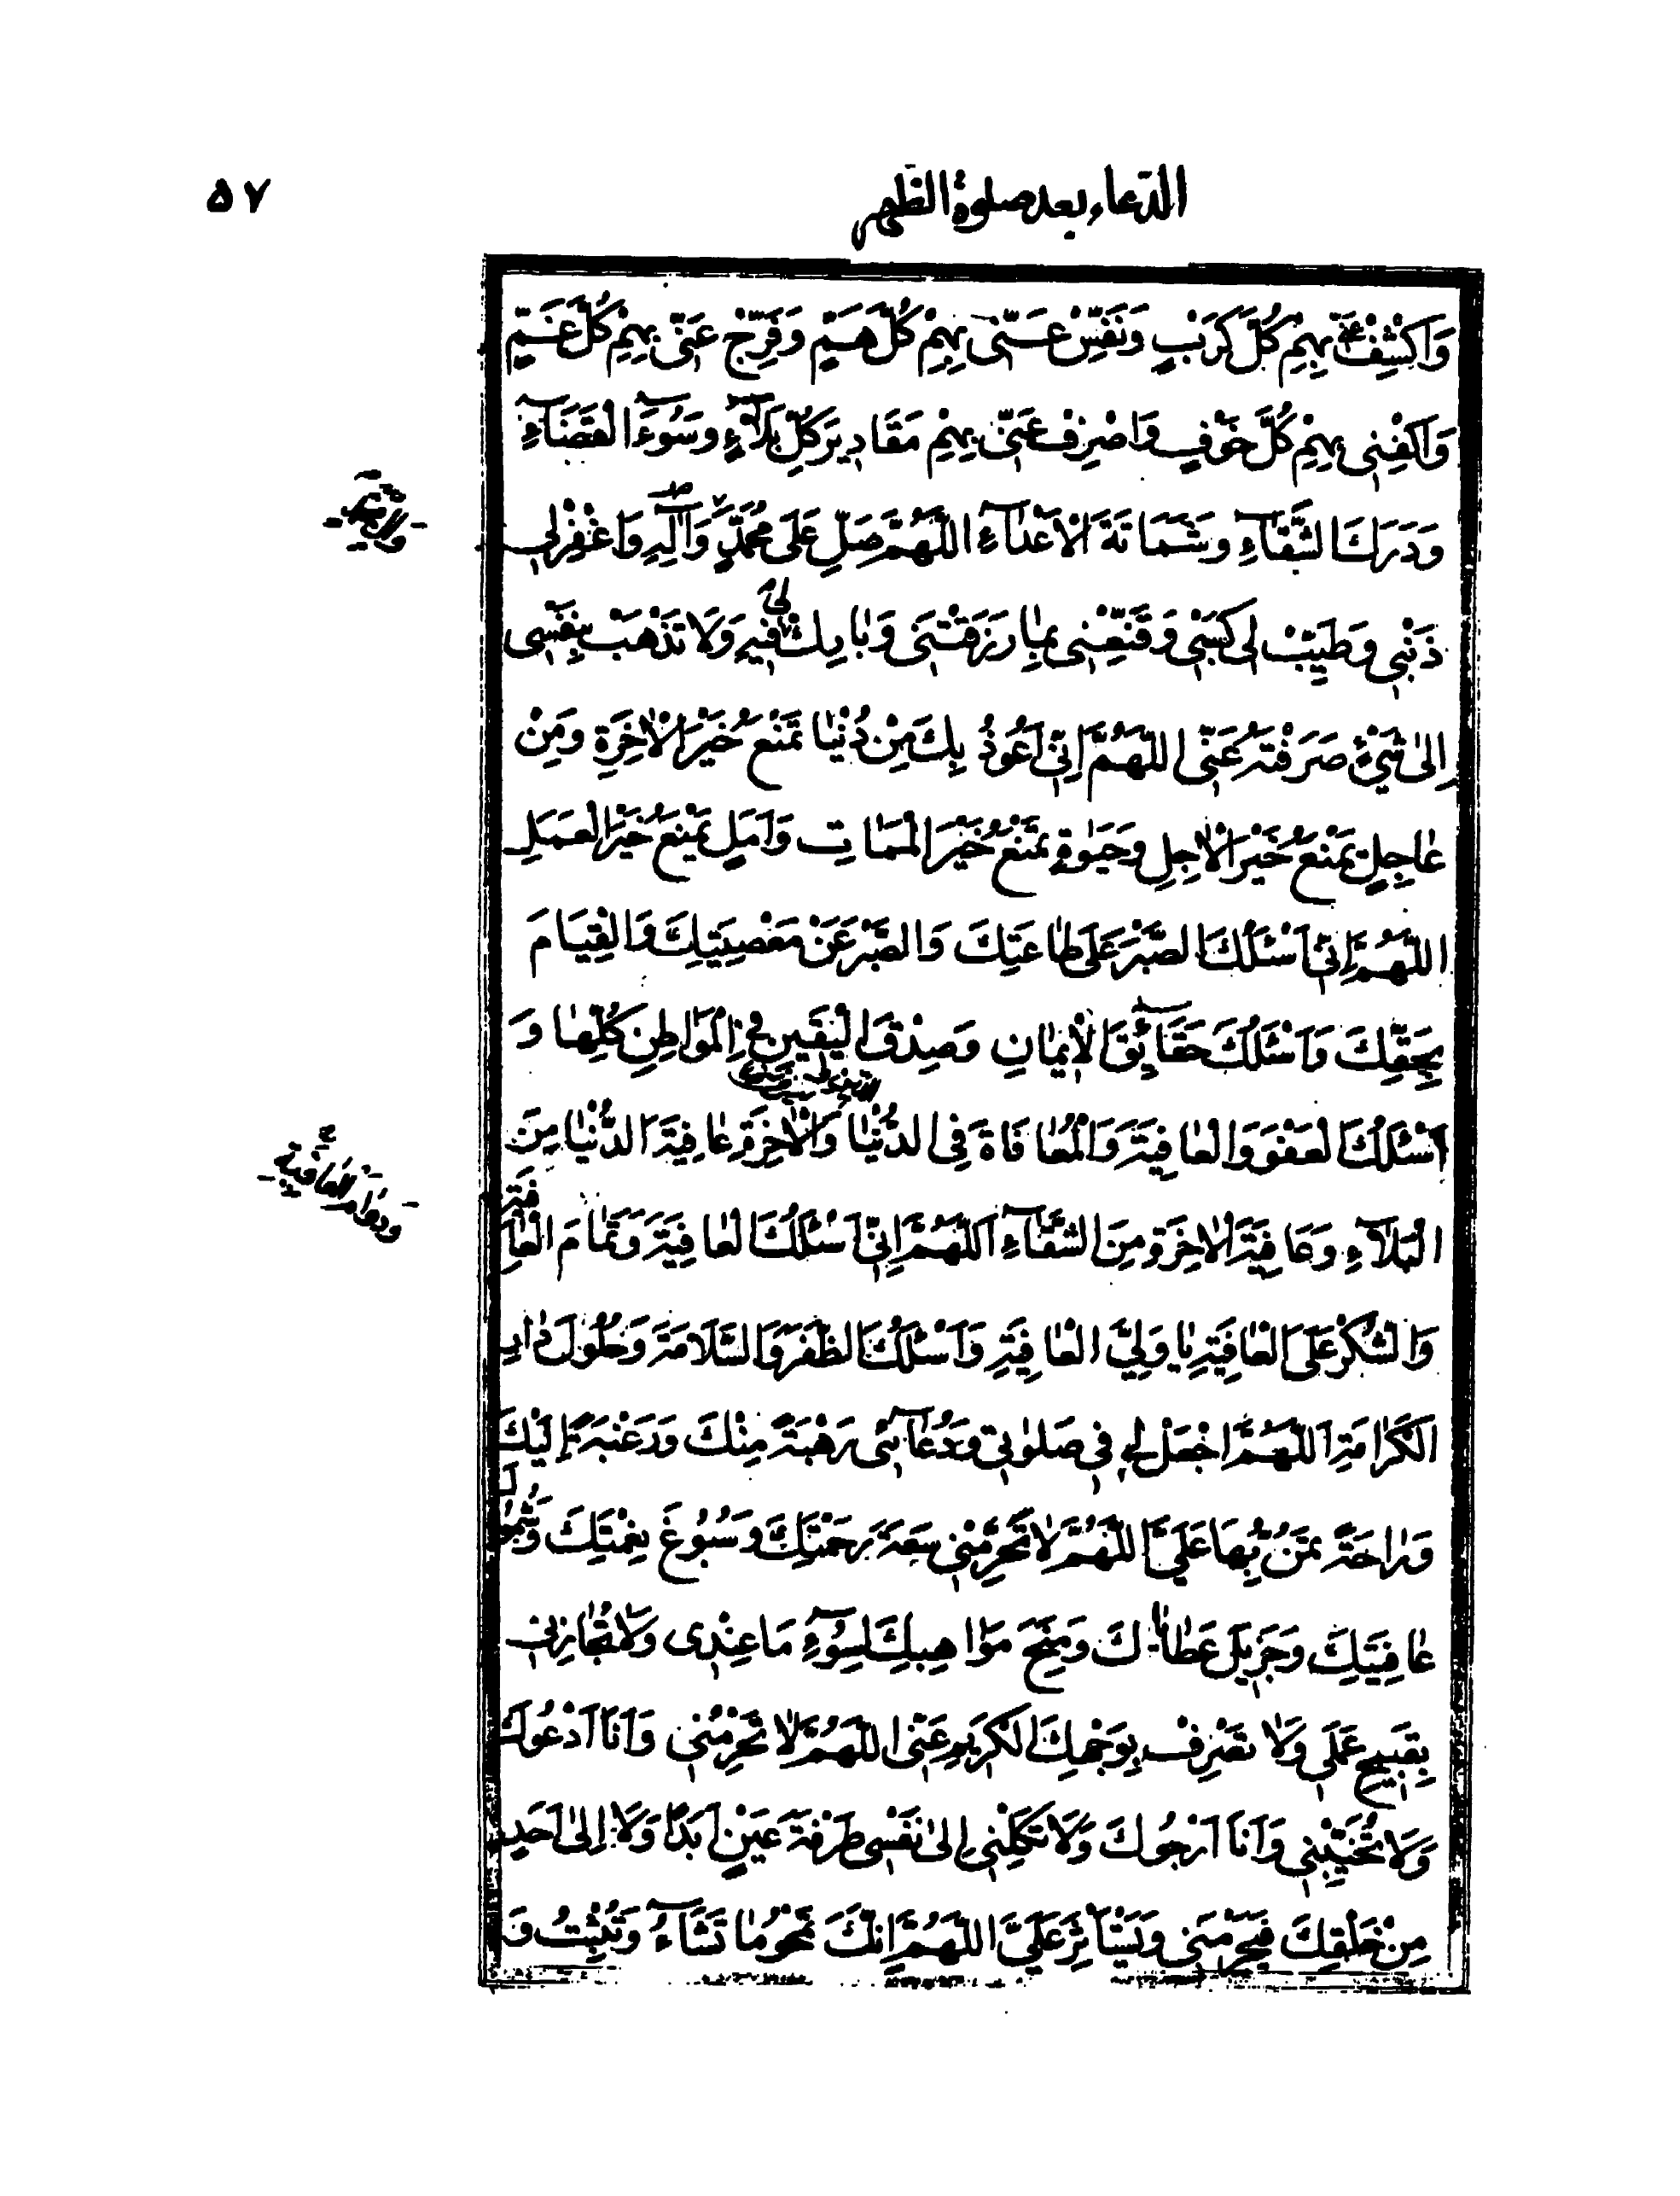 الدعاء بعد صلوة الظهر
۵۷
وَاكْشِفْ عَنّی بِهِمْ كُلَّ كَرْبٍ وَنَفِّسْ عَنّی بِهِمْ كُلَّ هَمٍّ وَفَرِّجْ عَنّی بِهِمْ كُلَّ غَمٍّ
وَاكْفِنی بِهِمْ كُلَّ خَوْفٍ وَاصْرِفْ عَنّی بِهِمْ مَقَادِيرَ كُلِّ بَلآءٍ وَسُوءَ الْقَضَآءِ
وَدَرَكَ الشَّقَآءِ وَشَمَاتَةَ الْأَعْدآءِ اللّهُمَّ صَلِّ عَلَى مُحَمَّدٍ وَآلِهِ وَاغْفِرْلی
ذَنْبی وَطَيِّبْ لی كَسْبی وَقَنِّعْنی بِمٰا رَزَقْتَنی وَبٰارِكْ لی فيهِ وَلٰا تَذْهَبْ بِنَفْسی
اِلىٰ شَیْءٍ صَرَفْتَهُ عَنّی اللّهُمَّ اِنّی اَعُوذُ بِكَ مِنْ دُنْيٰا تَمْنَعُ خَيْرَ الْاٰخِرَةِ وَمِنْ
عٰاجِلٍ يَمْنَعُ خَيْرَ الْاٰجِلِ وَحَيٰوةٍ تَمْنَعُ خَيْرَ الْمَمٰاتِ وَاَمَلٍ يَمْنَعُ خَيْرَ الْعَمَلِ
اللّهُمَّ اِنّی اَسْئَلُكَ الصَّبْرَ عَلَى طٰاعَتِكَ وَالصَّبْرَ عَنْ مَعْصِيَتِكَ وَالْقِيٰامَ
بِحَقِّكَ وَاَسْئَلُكَ حَقَآئِقَ الْأيمٰانِ وَصِدْقَ الْيَقينِ فِی الْمَوٰاطِنِ كُلِّهٰا وَ
اَسْئَلُكَ الْعَفْوَ وَالْعٰافِيَةَ وَالْمُعٰافَاةَ فِی الدُّنْيٰا وَالْاٰخِرَةِ عٰافِيَةَ الدُّنْيٰا مِنَ
الْبَلآءِ وَعَافِيَةَ الْاٰخِرَةِ مِنَ الشَّقَآءِ اَللّهُمَّ اِنّی اَسْئَلُكَ الْعٰافِيَةَ وَتَمٰامَ الْعٰافِيَةِ
وَدَوٰامَ الْعٰافِيَةِ
وَالشُّكْرَ عَلَى الْعٰافِيَةِ يٰا وَلِیَّ الْعٰافِيَةِ وَاَسْئَلُكَ الظَّفَرَ وَالسَّلٰامَةَ وَحُلُولَ دٰارِ
الْكَرٰامَةِ اللّهُمَّ اجْعَلْ لی فی صَلوٰتی وَدُعآئی رَهْبَةً مِنْكَ وَرَغْبَةً اِلَيْكَ
وَرٰاحَةً تَمُنُّ بِهَا عَلَیَّ اللّهُمَّ لٰا تَحْرِمْنی سَعَةَ رَحْمَتِكَ وَسُبُوغَ نِعْمَتِكَ وَشُمُولَ
عٰافِيَتِكَ وَجَزيلَ عَطٰائِكَ وَمِنَحَ مَوٰاهِبِكَ لِسُوءِ مَا عِنْدی وَلٰا تُجٰازِنی
بِقَبيحِ عَمَلی وَلٰا تَصْرِفْ بِوَجْهِكَ الْكَريمِ عَنّی اللّهُمَّ لٰا تَحْرِمْنی وَاَنَا اَدْعُوكَ
وَلٰا تُخَيِّبْنی وَاَنَا اَرْجُوكَ وَلٰا تَكِلْنی اِلىٰ نَفْسی طَرْفَةَ عَيْنٍ اَبَدًا وَلٰا اِلىٰ اَحَدٍ
مِنْ خَلْقِكَ فَيَحْرِمَنی وَيَسْتَأْثِرَ عَلَیَّ اللّهُمَّ اِنَّكَ تَمْحُو مٰا تَشَآءُ وَتُثْبِتُ وَ